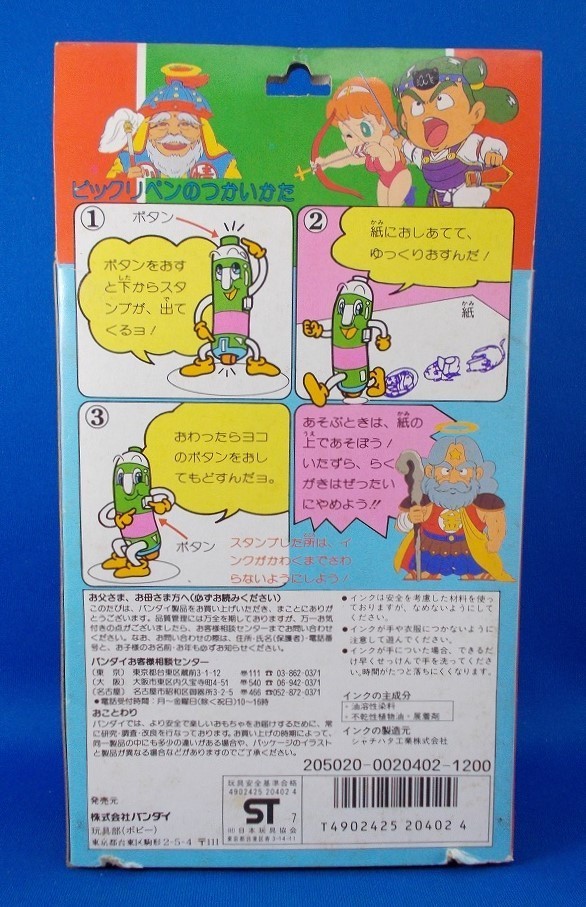 ビックリペンのつかいかた
①
ボタン
ボタンをおす
と下からスタ
した
ンプが、出て
で
くるヨ!
②
かみ
紙におしあてて、
ゆっくりおすんだ!
かみ
紙
③
おわったらヨコ
のボタンをおし
てもどすんだヨ。
ボタン
かみ
あそぶときは、紙の
うえ
上であそぼう!
いたずら、らく
がきはぜったい
にやめよう!!
スタンプした所は、イ
ンクがかわくまでさわ
らないようにしよう!
お父さま、お母さま方へ(必ずお読みください)
このたびは、バンダイ製品をお買い上げいただき、まことにありが
とうございます。品質管理には万全を期しておりますが、万一お気
付きの点がございましたら、お客様相談センターまでお問い合わせ
ください。なお、お問い合わせの際は、住所・氏名(保護者)・電話番
号と、お子様のお名前・お年も必ずお知らせください。
バンダイお客様相談センター
(東 京) 東京都台東区蔵前3-1-12 〒111 ☎ 03-862-0371
(大 阪) 大阪市東区内久宝寺町4-51 〒540 ☎ 06-942-0371
(名古屋) 名古屋市昭和区御器所3-2-5 〒466 ☎052-872-0371
●電話受付時間:月~金曜日(除く祝日)10~16時
おことわり
バンダイでは、より安全で楽しいおもちゃをお届けするために、常
に研究・調査・改良を行なっております。お買い上げの時期によって、
同一製品の中にも多少の違いがある場合や、パッケージのイラスト
と製品が異なる場合などがありますのでご了承ください。
●インクは安全を考慮した材料を使っ
ておりますが、なめないようにして
ください。
●インクが手や衣服につかないように
注意して遊んでください。
●インクが手についた場合、できるだ
け早くせっけんで手を洗ってくださ
い。時間がたつと落ちにくくなります。
インクの主成分
・油溶性染料
・不乾性植物油・展着剤
インクの製造元
シャチハタ工業株式会社
205020-0020402-1200
玩具安全基準合格
4902425 20402 4
ST 7
(社)日本玩具協会
T4902425 20402 4
発売元
株式会社 バンダイ
玩具部(ポピー)
東京都台東区駒形2-5-4 〒111